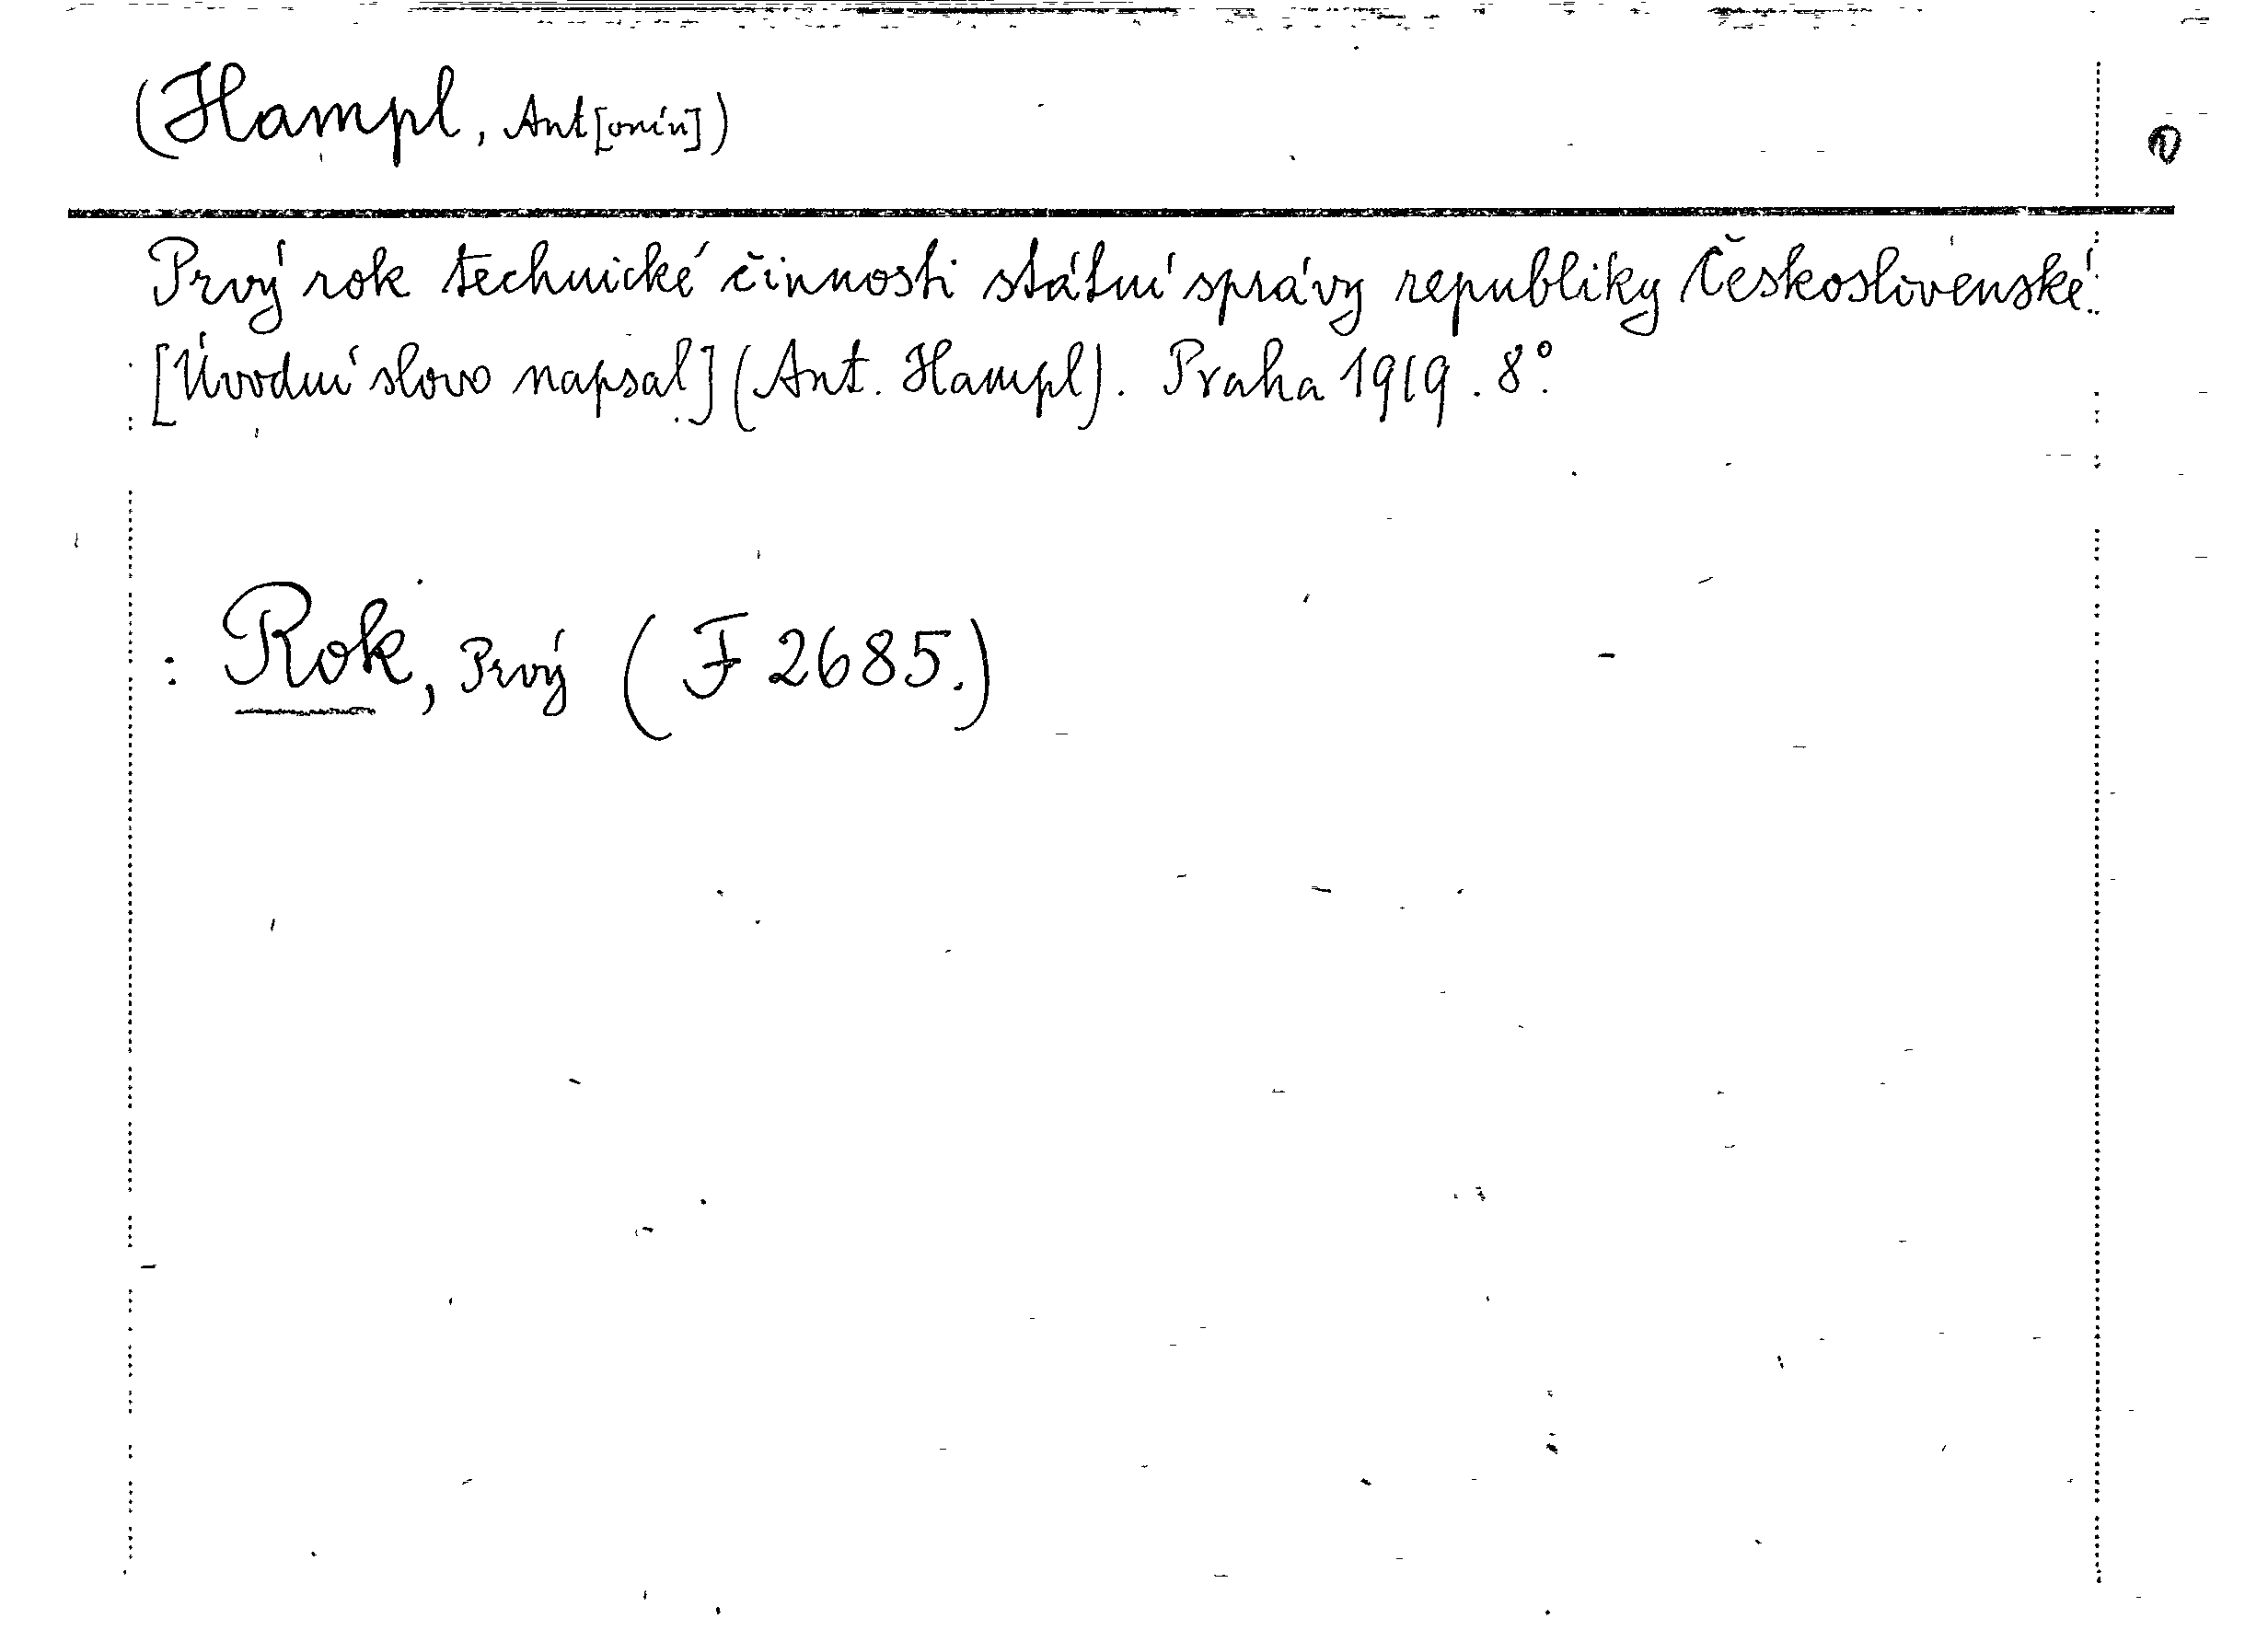 (Hampl, Ant[onín])
Prvý rok technické činnosti státní správy republiky Československé.
[Úvodní slovo napsal] (Ant. Hampl). Praha 1919. 8°.
: Rok, Prvý (F 2685.)